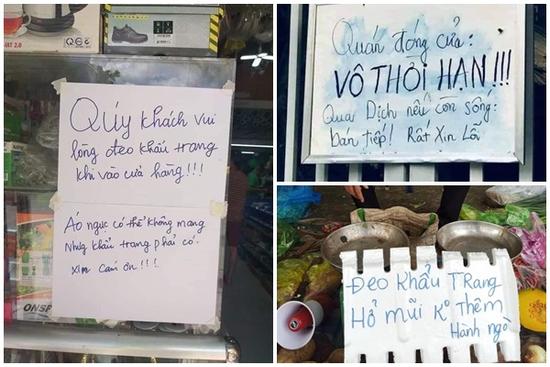 QÚY KHÁCH VUI
lòng đeo khẩu trang
khi vào cửa hàng!!!
ÁO ngực có thể không mang
Nhưg khẩu trang phải có.
XIN CẢM ƠN!!!
ONSP
Quán đóng cửa:
VÔ THỜI HẠN!!!
Qua Dịch nếu còn sống:
bán tiếp! Rất Xin Lỗi
ĐEO KHẨU TRANG
HỞ MŨI Kº THÊM
HÀNH NGÒ